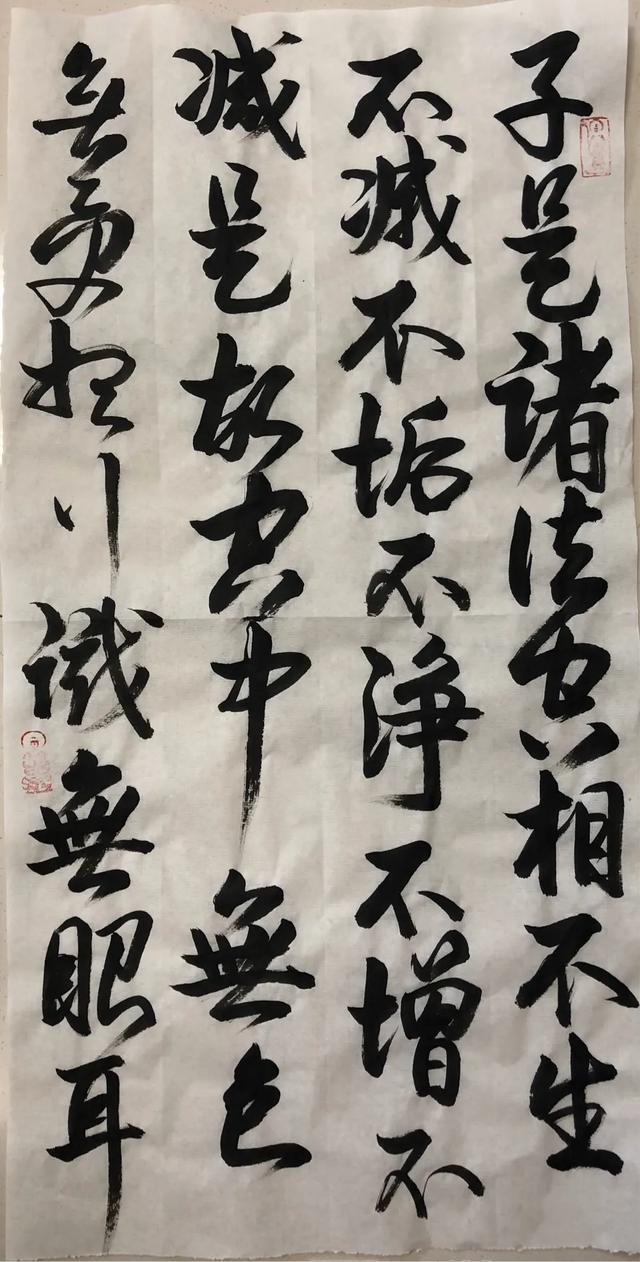 子是諸法空相不生
不滅不垢不淨不增不
減是故空中無色
無受想行識無眼耳